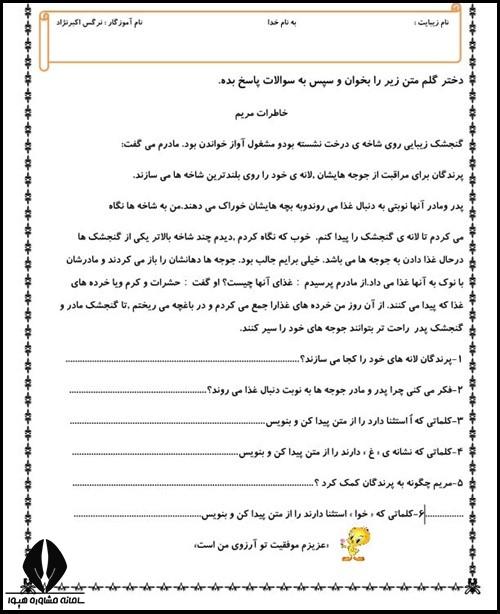 نام زیبایت : به نام خدا نام آموزگار : نرگس اکبرنژاد
دختر گلم متن زیر را بخوان و سپس به سوالات پاسخ بده.
خاطرات مریم
گنجشک زیبایی روی شاخه ی درخت نشسته بودو مشغول آواز خواندن بود. مادرم می گفت:
پرندگان برای مراقبت از جوجه هایشان ,لانه ی خود را روی بلندترین شاخه ها می سازند.
پدر ومادر آنها نوبتی به دنبال غذا می روندوبه بچه هایشان خوراک می دهند.من به شاخه ها نگاه
می کردم تا لانه ی گنجشک را پیدا کنم. خوب که نگاه کردم ,دیدم چند شاخه بالاتر یکی از گنجشک ها
درحال غذا دادن به جوجه ها می باشد. خیلی برایم جالب بود. جوجه ها دهانشان را باز می کردند و مادرشان
با نوک به آنها غذا می داد.از مادرم پرسیدم : غذای آنها چیست؟ او گفت : حشرات و کرم ویا خرده های
غذا که پیدا می کنند. از آن روز من خرده های غذارا جمع می کردم و در باغچه می ریختم ,تا گنجشک مادر و
گنجشک پدر راحت تر بتوانند جوجه های خود را سیر کنند.
۱-پرندگان لانه های خود را کجا می سازند؟............................................................
۲-فکر می کنی چرا پدر و مادر جوجه ها به نوبت دنبال غذا می روند؟...................................
۳-کلماتی که اُ استثنا دارد را از متن پیدا کن و بنویس..................................................
۴-کلماتی که نشانه ی « غ » دارند را از متن پیدا کن و بنویس...........................................
۵-مریم چگونه به پرندگان کمک کرد ؟.................................................................
۶-کلماتی که « خوا » استثنا دارند را از متن پیدا کن و بنویس.................................
«عزیزم موفقیت تو آرزوی من است»
سامانه مشاوره هیوا